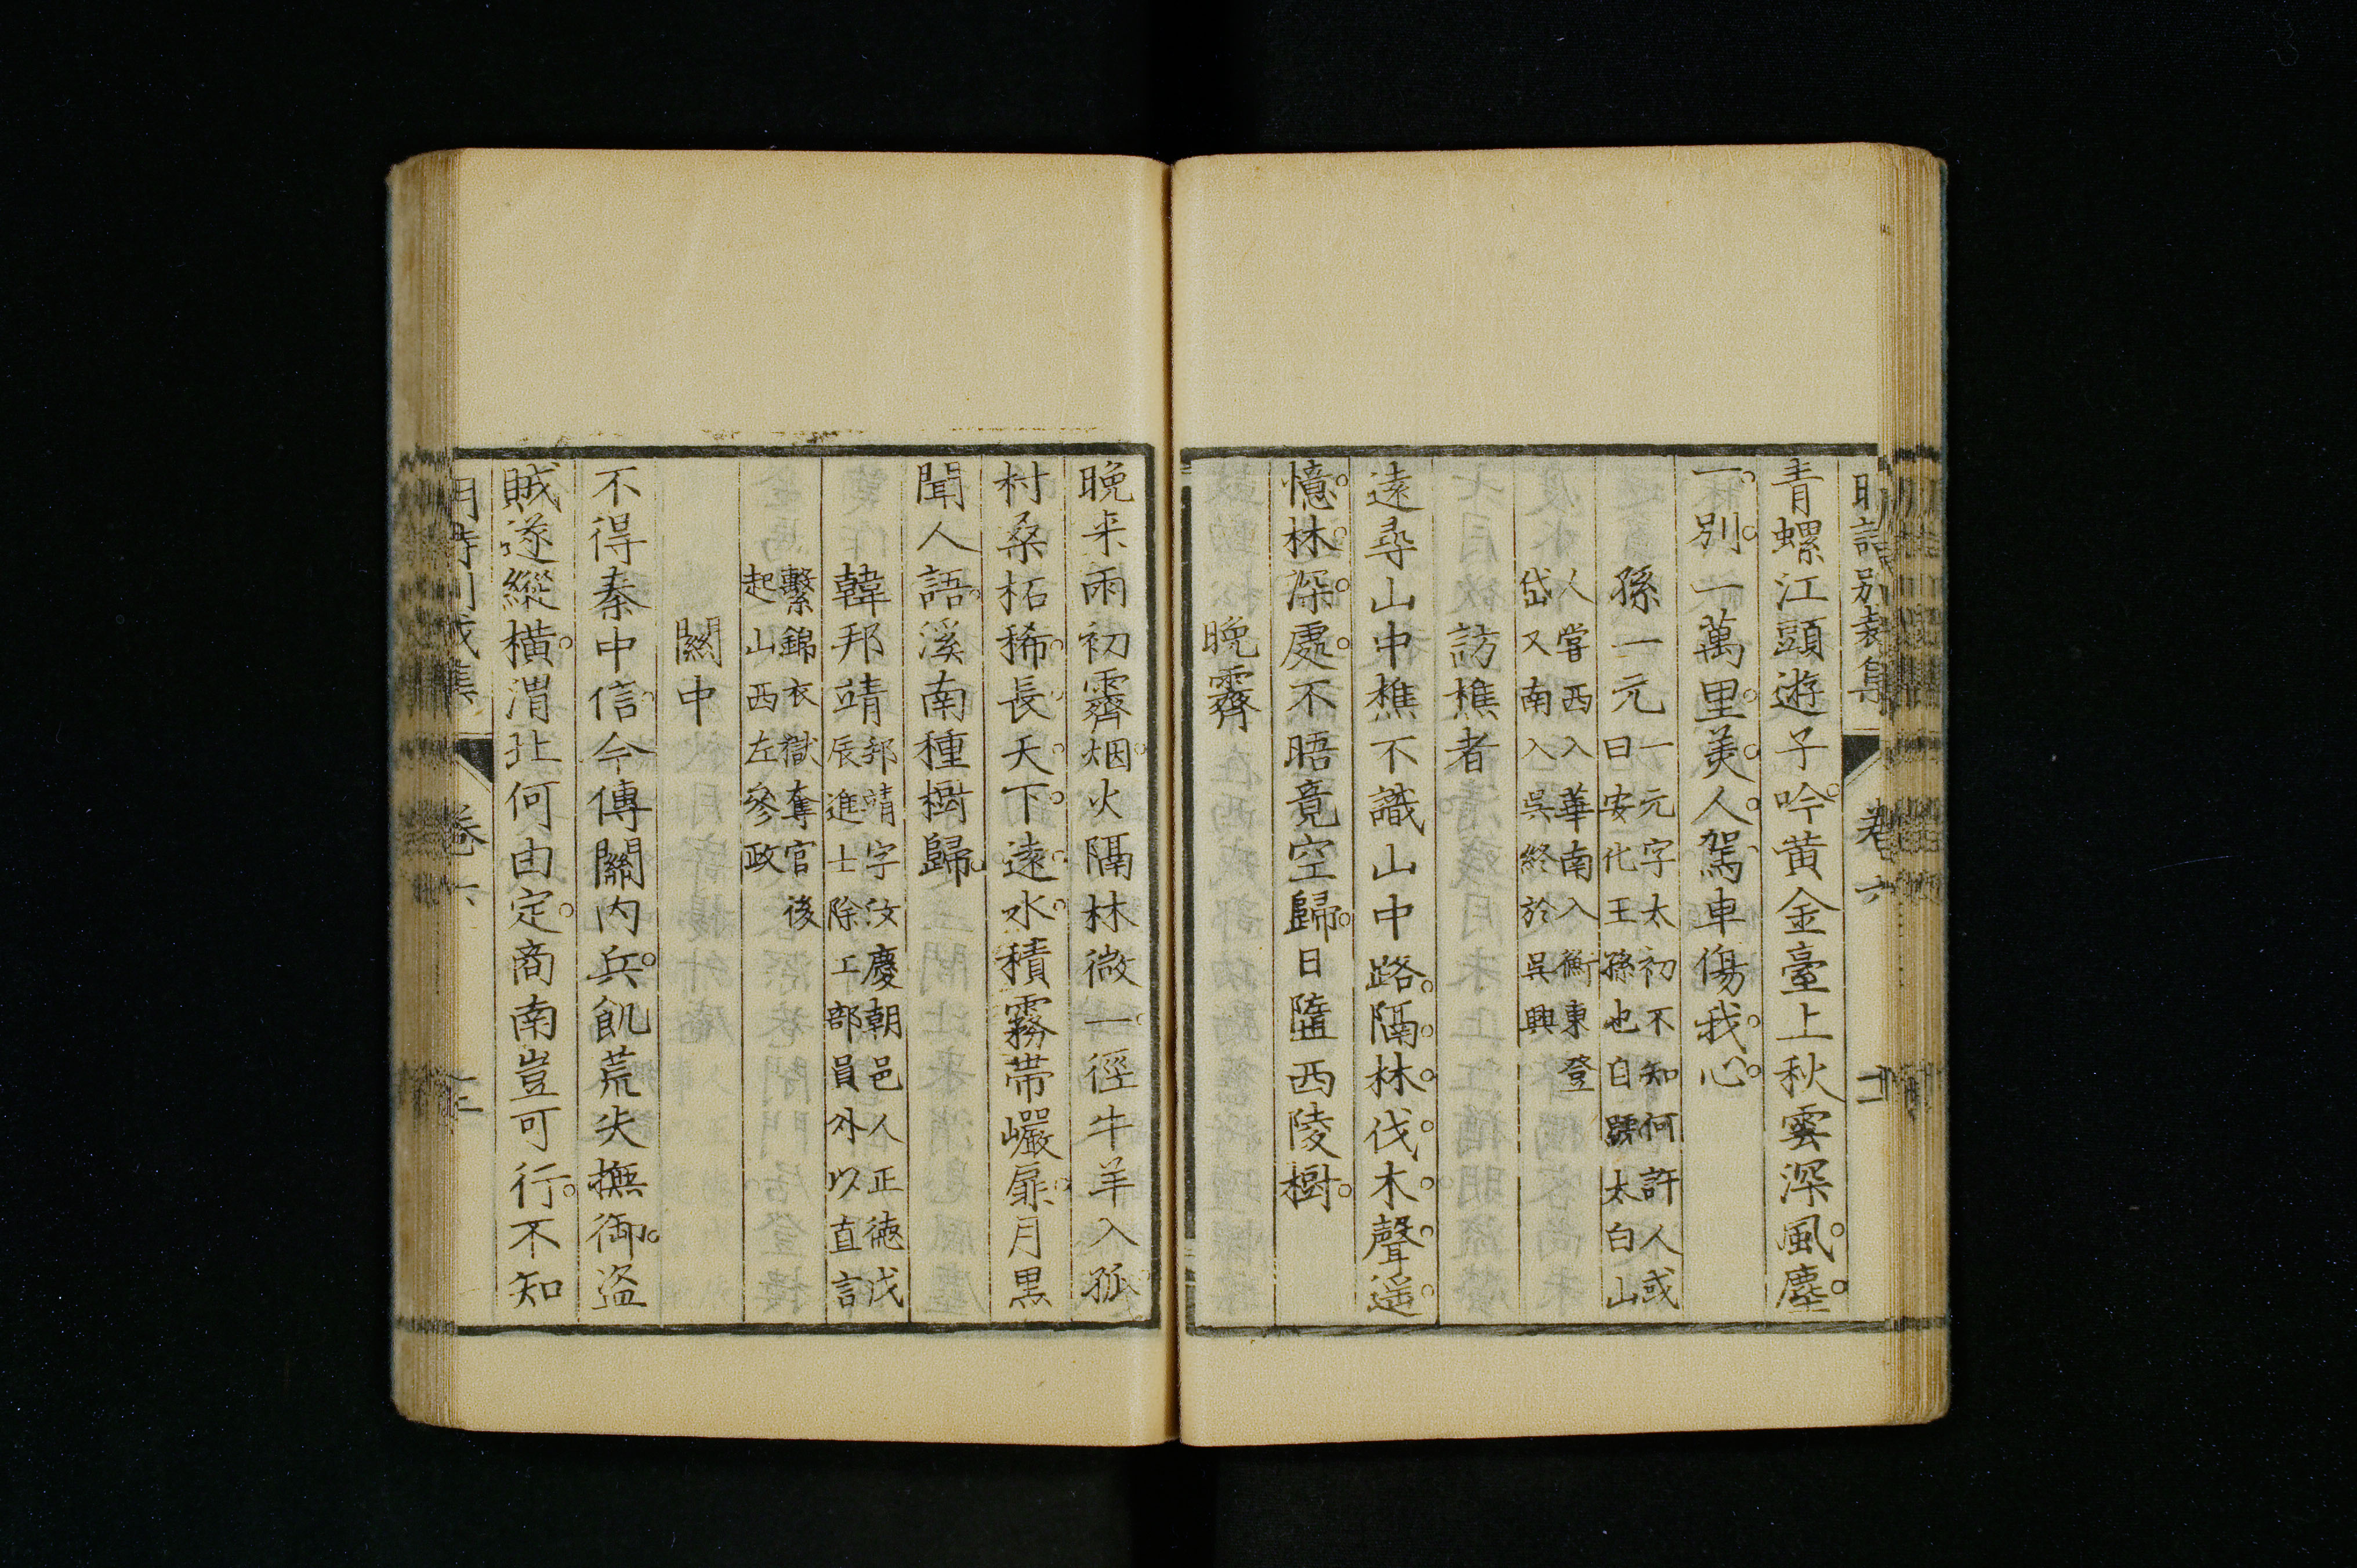 明詩別裁集 卷六 十二
青螺江頭遊子吟黃金臺上秋雲深風塵
一別一萬里美人駕車傷我心
孫一元一元字太初不知何許人或
曰安化王孫也自號太白山
人嘗西入華南入衡東登
岱又南入吳終於吳興
訪樵者
遠尋山中樵不識山中路隔林伐木聲遥
憶林深處不晤竟空歸日墮西陵樹
晚霽
晚来雨初霽烟火隔林微一徑牛羊入孤
村桑柘稀長天下遠水積霧帶巖扉月黑
聞人語溪南種樹歸
韓邦靖邦靖字汝慶朝邑人正德戊
辰進士除工部員外以直言
繫錦衣獄奪官後
起山西左參政
關中
不得秦中信今傳關內兵飢荒失撫御盜
賊遂縱橫渭北何由定商南豈可行不知